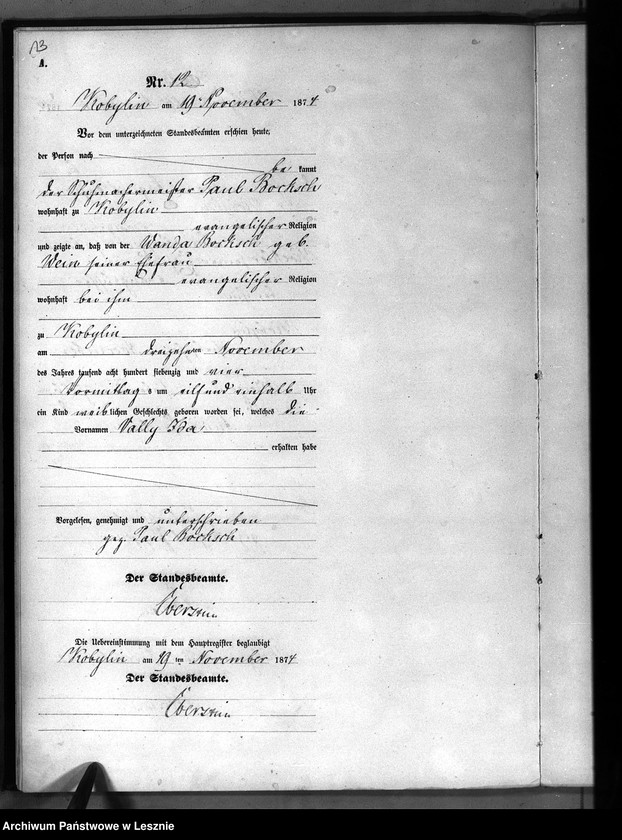 13
A.
Nr. 12
Kobylin am 19 November 1874
Vor dem unterzeichneten Standesbeamten erschien heute,
der Person nach
be kannt
der Schuhmachermeister Paul Bocksch
wohnhaft zu Kobylin
evangelischer Religion
und zeigte an, daß von der Wanda Bocksch geb.
Wein seiner Ehefrau
evangelischer Religion
wohnhaft bei ihm
zu Kobylin
am dreizehnten November
des Jahres tausend acht hundert siebenzig und vier
Vormittags um eilf und einhalb Uhr
ein Kind weiblichen Geschlechts geboren worden sei, welches die
Vornamen Vally Ida
erhalten habe
Vorgelesen, genehmigt und unterschrieben
gez. Paul Bocksch
Der Standesbeamte.
Eberstein
Die Uebereinstimmung mit dem Hauptregister beglaubigt
Kobylin am 19 ten November 1874
Der Standesbeamte.
Eberstein
Archiwum Państwowe w Lesznie